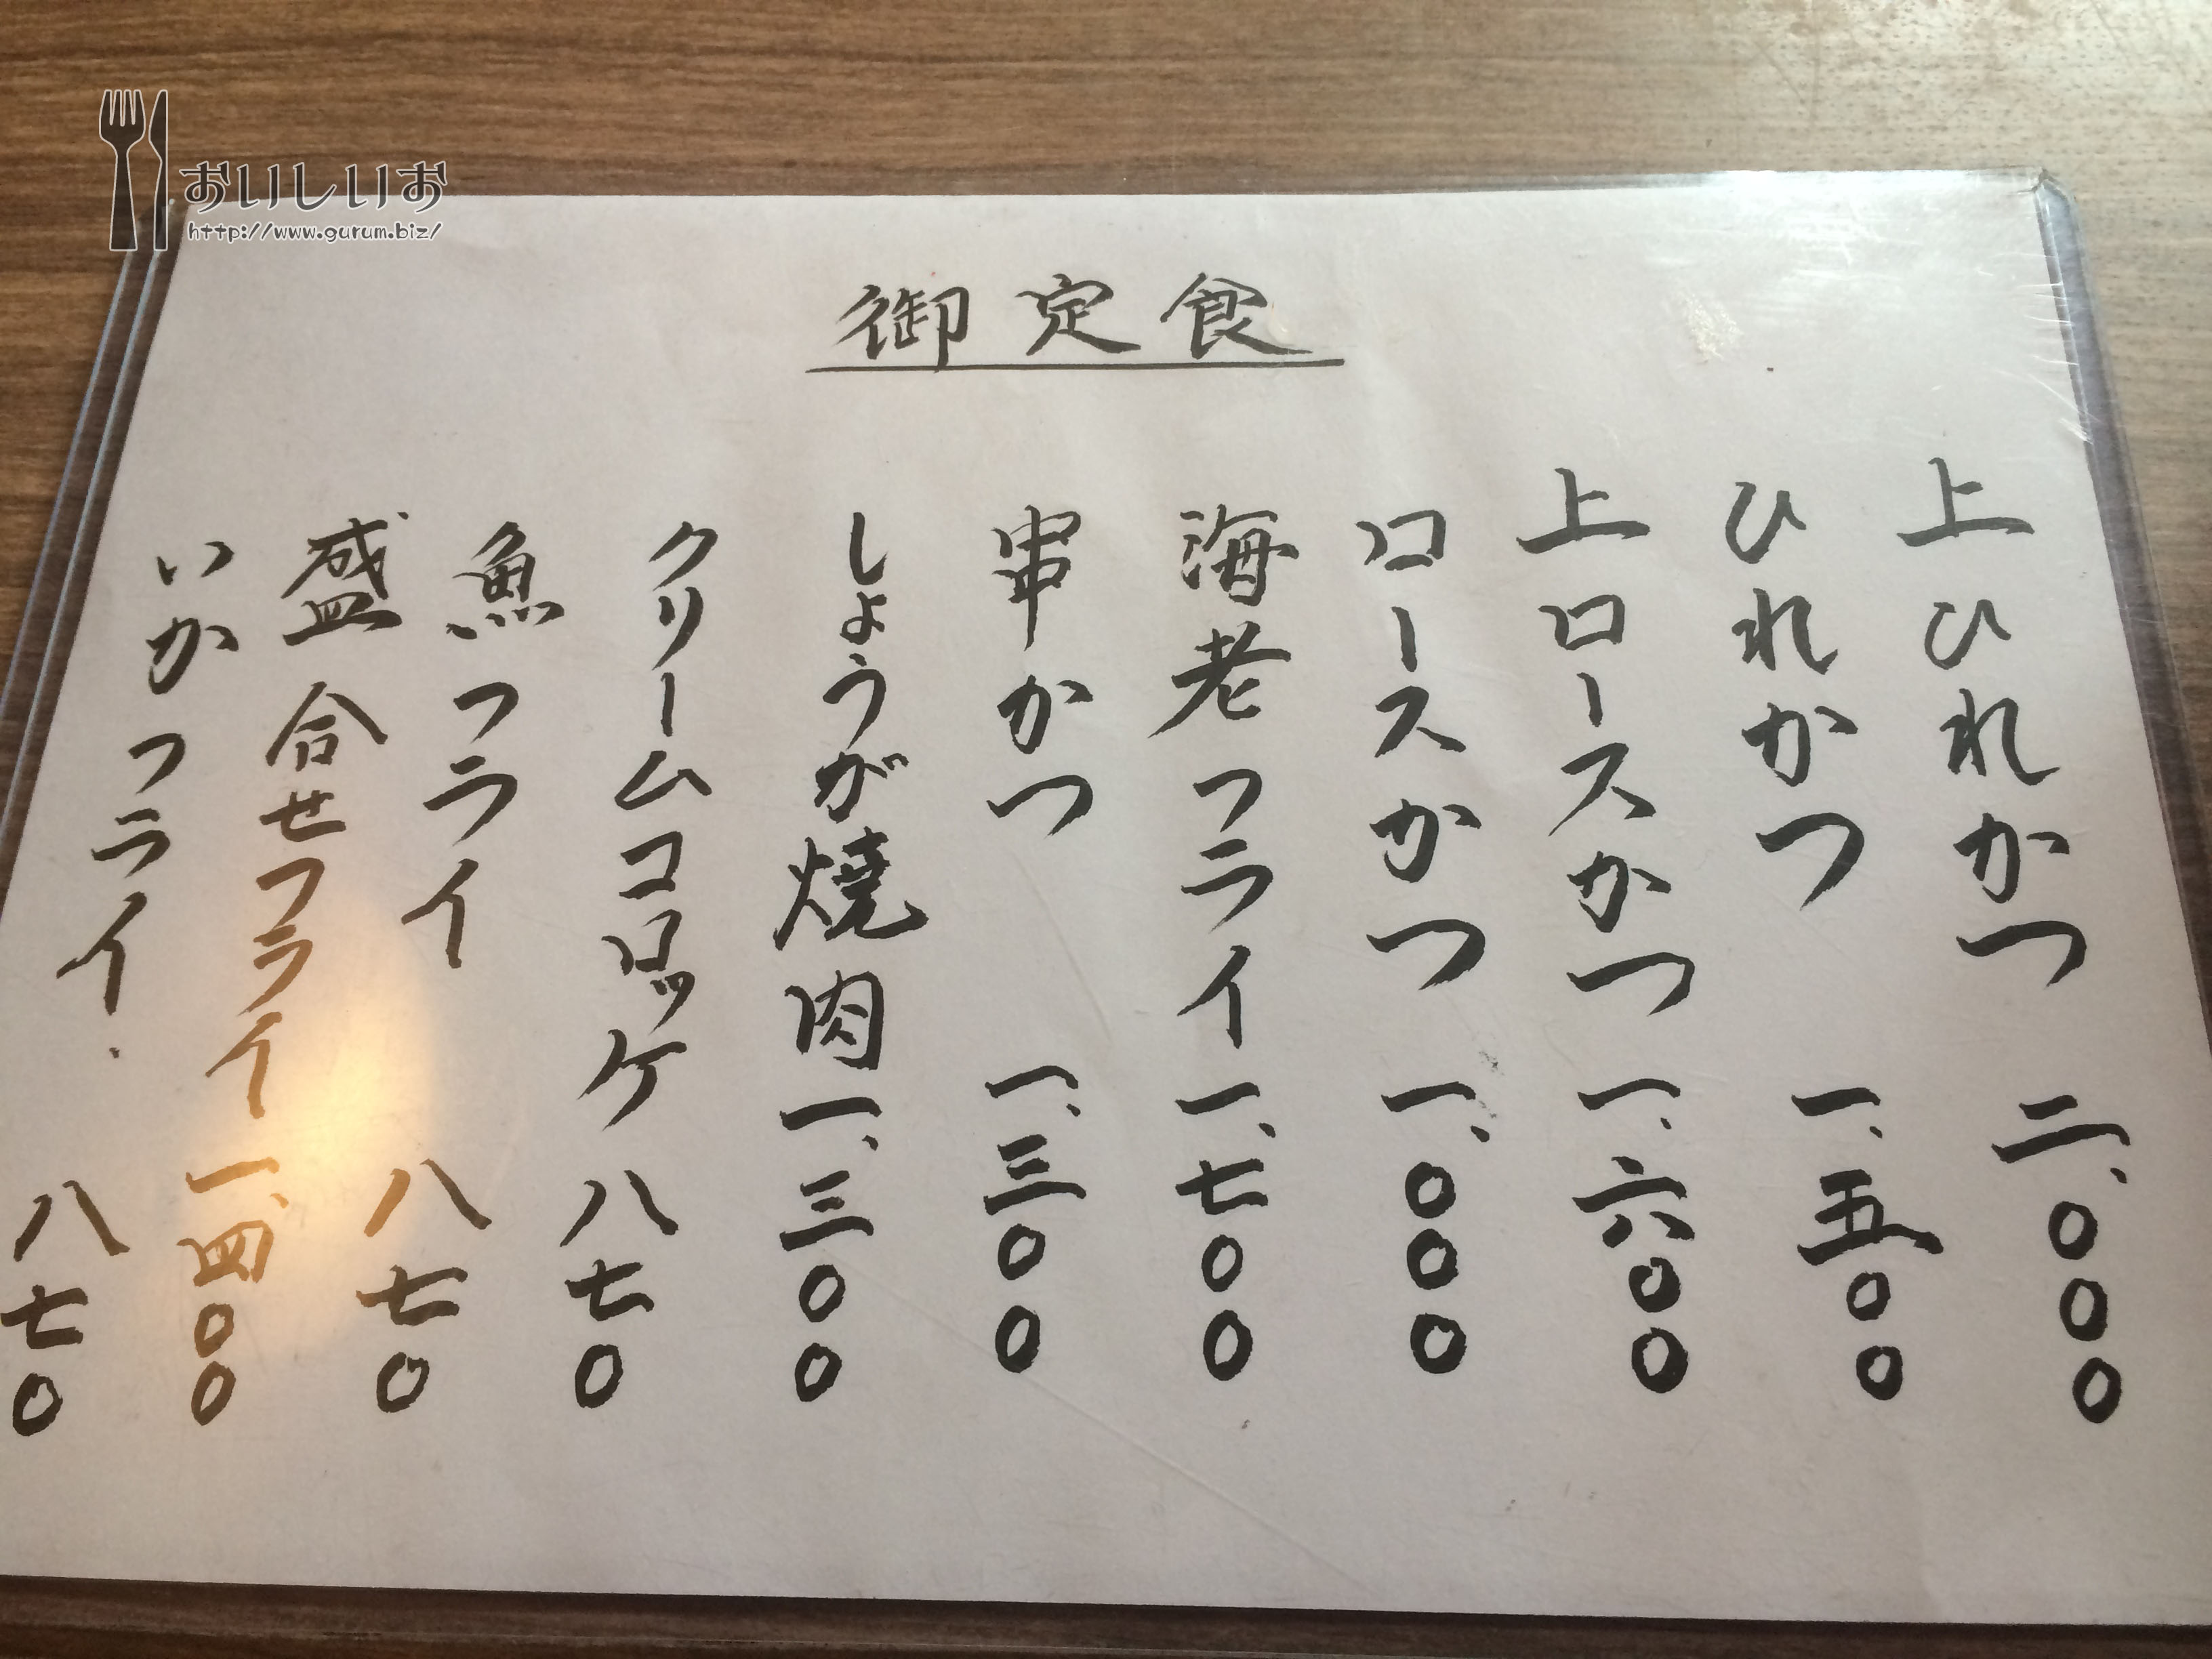 おいしいお
http://www.gurum.biz/
御定食
上ひれかつ 二、〇〇〇
ひれかつ 一、五〇〇
上ロースかつ 一、六〇〇
ロースかつ 一、〇〇〇
海老フライ 一、七〇〇
串かつ 一、三〇〇
しょうが焼肉 一、三〇〇
クリームコロッケ 八七〇
魚フライ 八七〇
盛合せフライ 一、四〇〇
いかフライ 八七〇